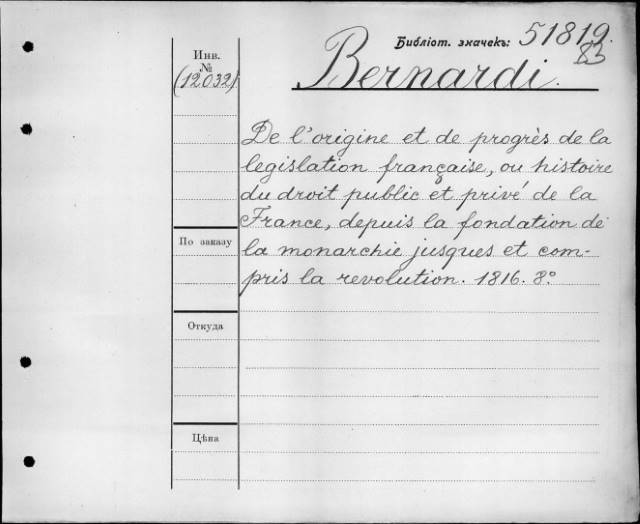 Библіот. значекъ: 51819.
83
Инв.
№
(12032)
Bernardi.
De l'origine et de progrès de la
legislation française, ou histoire
du droit public et privé de la
France, depuis la fondation de
la monarchie jusques et com-
pris la revolution. 1816. 8º
По заказу
Откуда
Цѣна